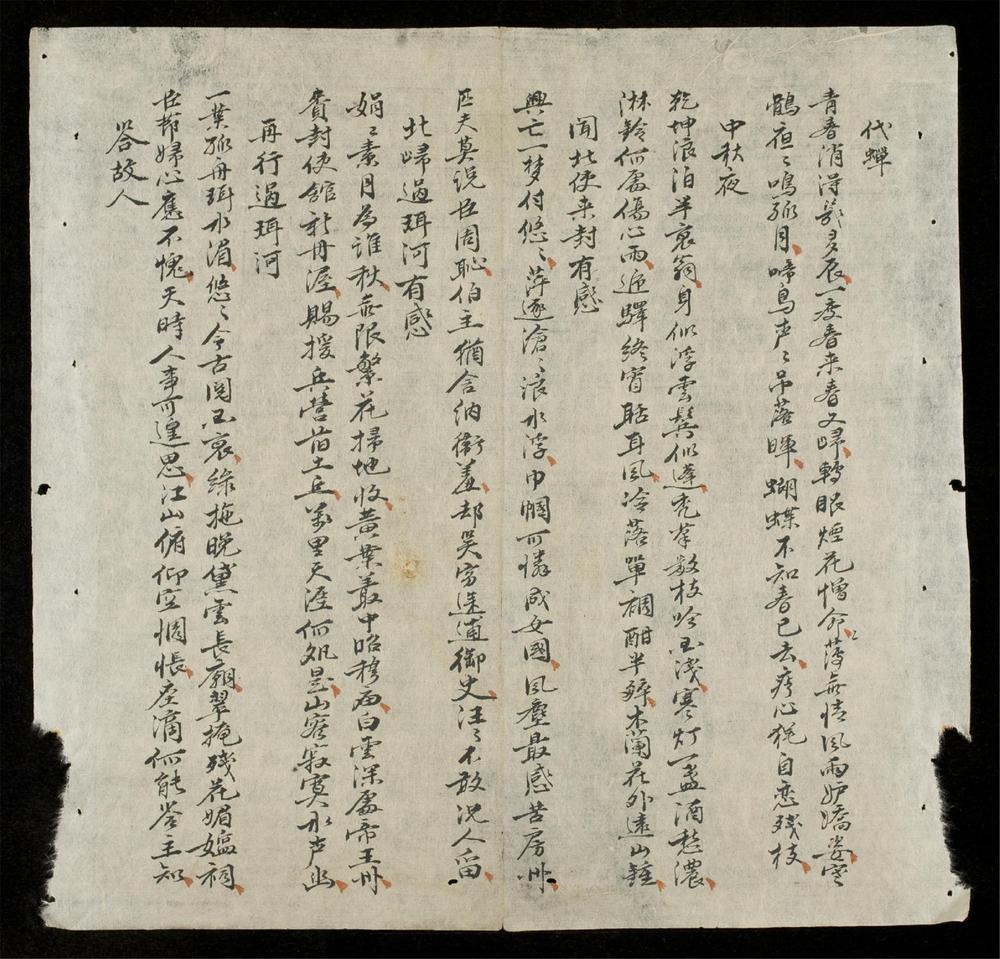 代蟬
青春消得幾多辰一度春来春又歸轉眼煙花憎命薄無情風雨妒嬌姿寒
鵑夜〻鳴孤月啼鳥声〻吊落暉蝴蝶不知春已去痴心犹自恋残枝
中秋夜
乾坤浪泊半衰翁身似浮雲鬓似蓬禿筆数枝吟玉淺寒灯一盞酒愁濃
淋鈴何處傷心雨追驛終宵聒耳風冷落單裯酣半醉木蘭花外遠山鍾
聞北使来封有感
興亡一梦付悠〻萍逐滄〻浪水浮巾幗可憐成女國風塵最感苦房州
匹夫莫説臣周恥伯主猶含納衛羞却哭穷途逋御史汪〻不敢况人留
北歸過珥河有感
娟〻素月為谁秋無限繁花掃地收黄葉叢中昭穆西白雲深處帝王州
賚封使館新丹渥賜援兵營旧土丘萬里天涯何処是山窓寂寞水声幽
再行過珥河
一葉孤舟珥水湄悠〻今古閲玉衰綠拖晚黛雲長廟翠掩残花媚媼祠
臣节婦心應不愧天時人事可遑思江山俯仰空惆悵座滴何能答主知
答故人